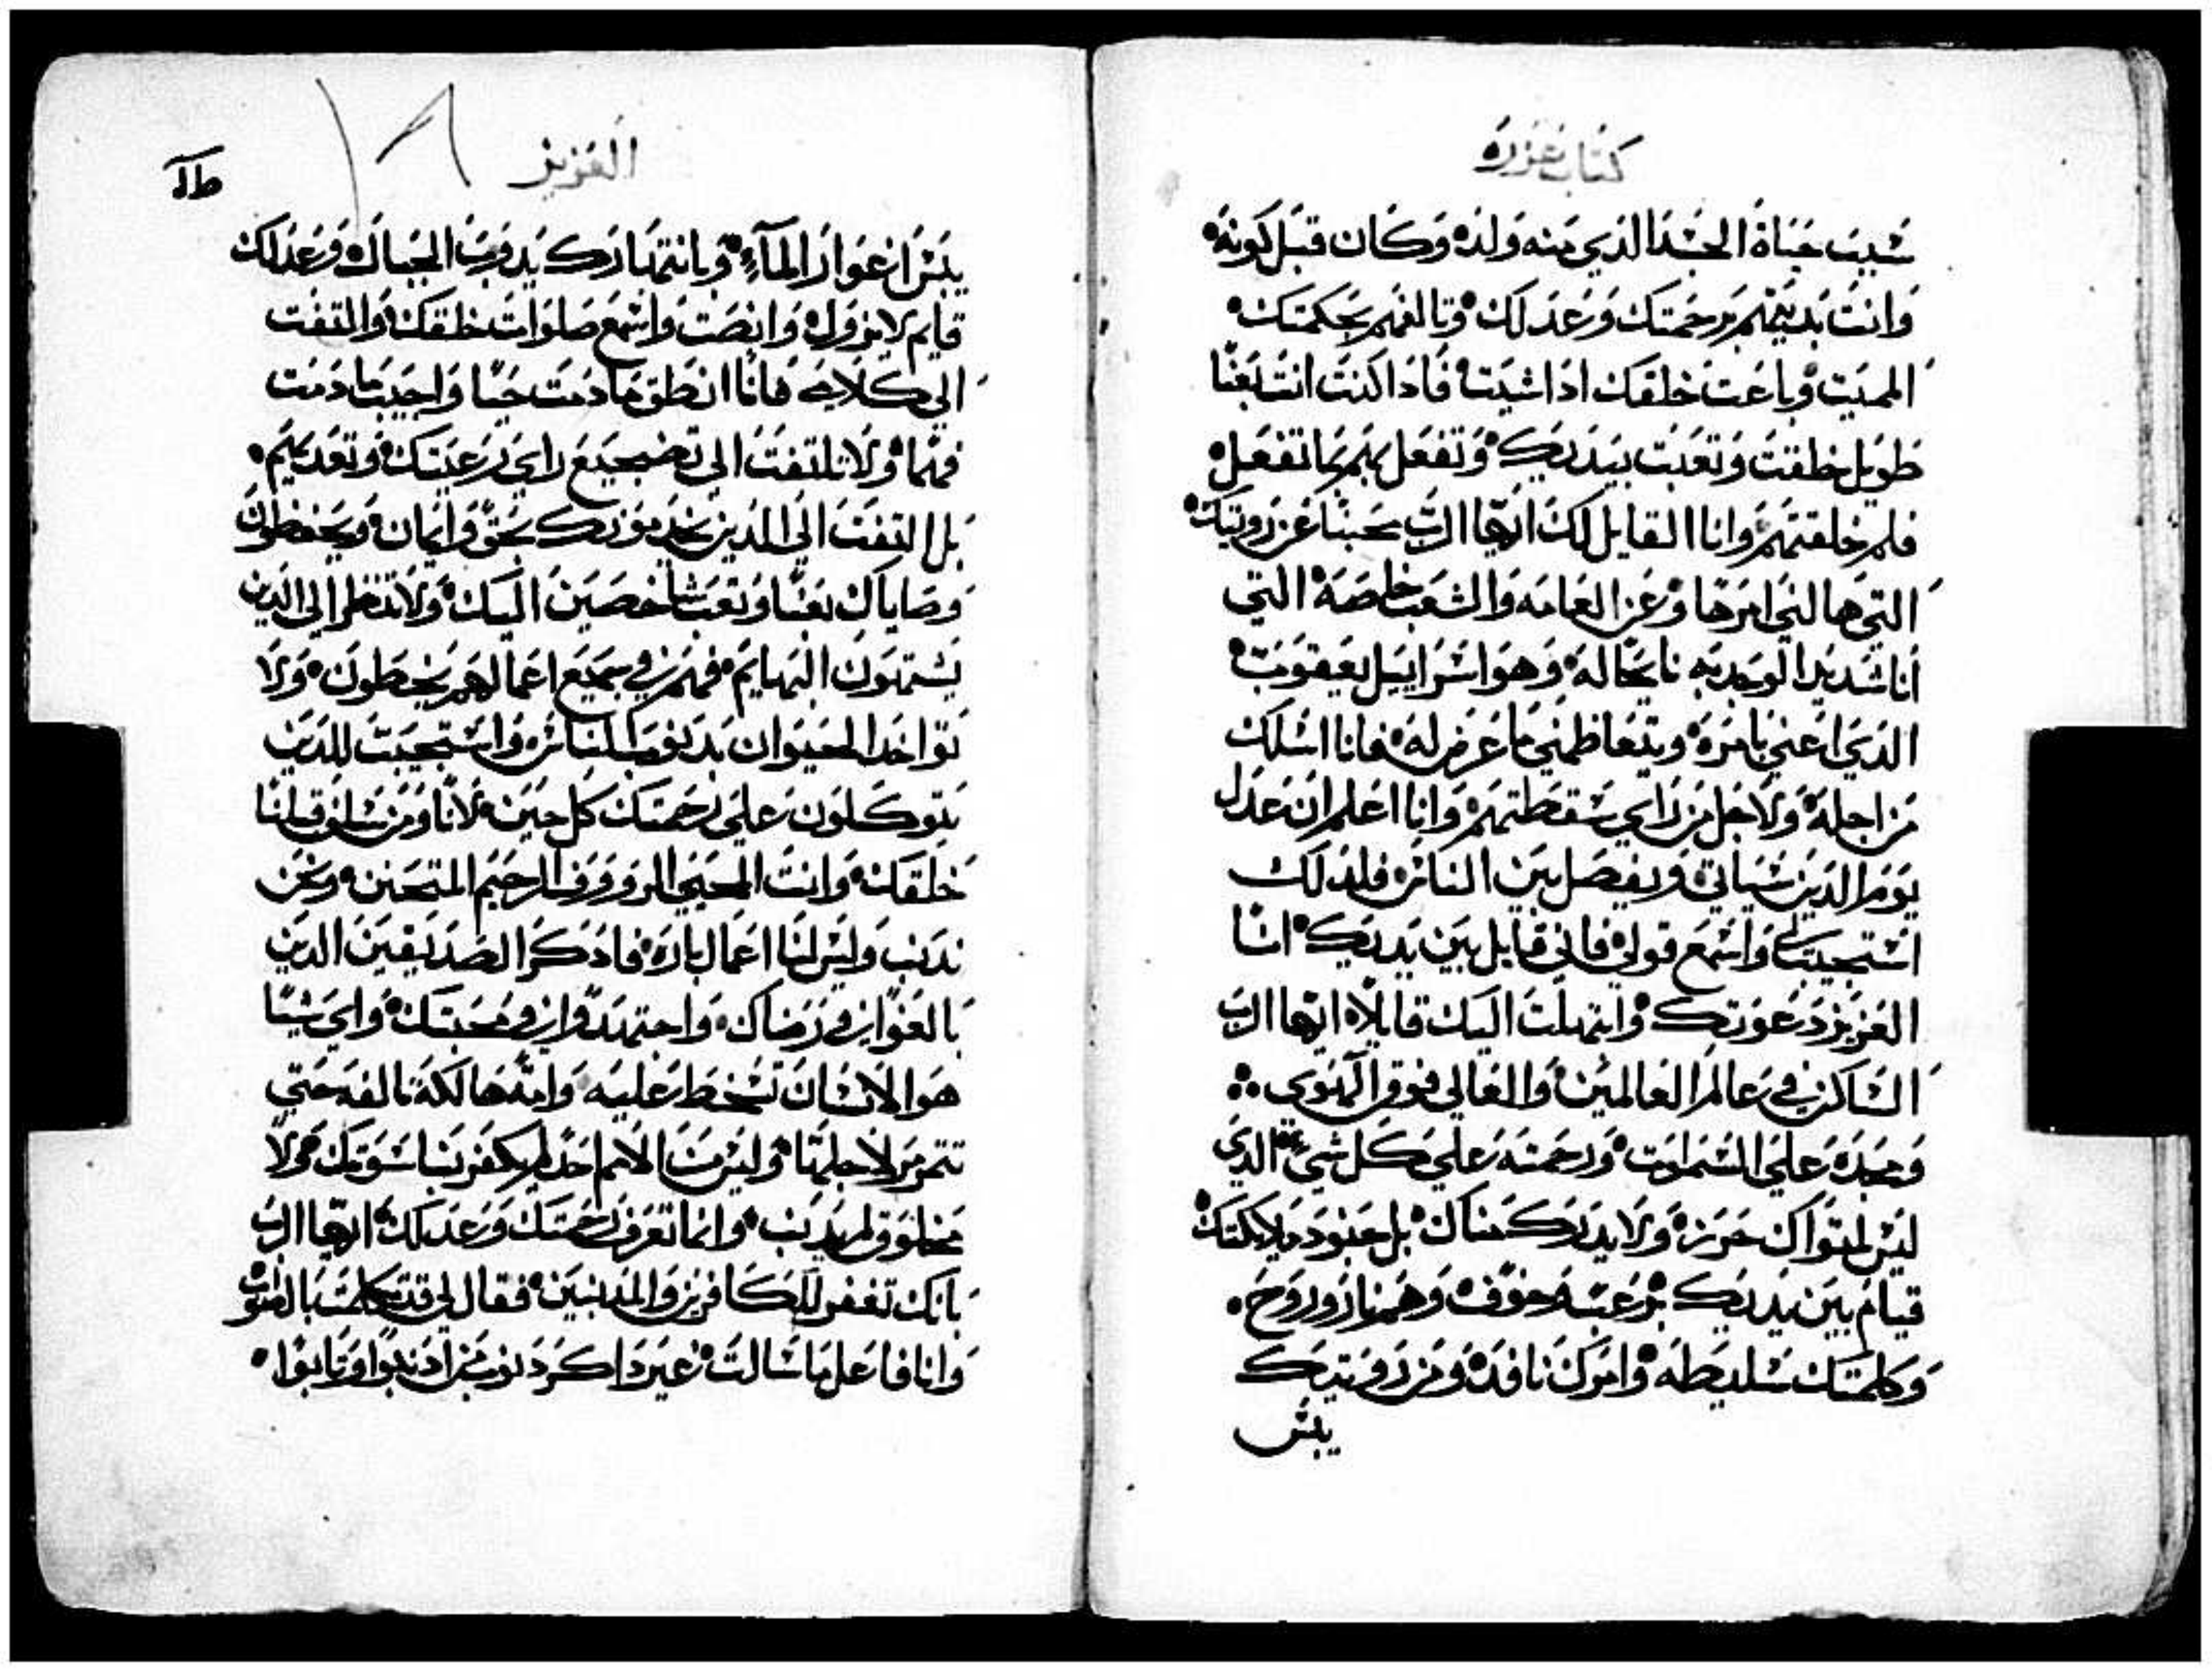 كتاب عزره
شيب حياة الجسد الذي منه ولد وكان قبل كونه
وانت بديتهم برحمتك وعدلك وتالفهم بحكمتك
المميت وباعت خلقك ادا شيت فادا كنت انت بعنا
طويل خلقت وتعبت بيديك وتفعل بهم بما تفعل
فلم خلقتهم وانا القايل لك ايها الرب محبنا عن رويتك
التي هالني امرها وعن العامه والشعب خاصة التي
انا شديد الوجد به نايحا له وهو اسراييل يعقوب
الذي اعني بامره ويتعاظمني ما عرض له فانا اسلك
من اجله ولاجل من راي سقطتهم وانا اعلم ان عدل
يوم الدين سياتي ويفصل بين الناس فلدلك
استجيب لي واسمع قولي فاني قايل بين يديك انا
العزيز دعوتك وابتهلت اليك قايلا ايها الرب
الساكن في عالم العالمين والعالي فوق الهوي
ومجده علي السموات ورحمته علي كل شي الذي
ليس لمتواك حرز ولا يدرك مناك بل جنود ملايكتك
قيام بين يديك برعبة وخوف وهم نار وروح
وكلمتك سليطه وامرك نافذ ومن رويتك
يبس
العزيز
يبس اغوار الماء وبانتهارك يدوب الجبال وعدلك
قايم لا يزول وانصت واسمع صلوات خلقك والتفت
الي كلامي فانا انطق ما دمت حيا واجيب ما دمت
فهما ولا تلتفت الي تضجيع راي رعيتك وتعديهم
بل التفت الي الدين يخدمونك بحق وايمان ويحفظون
وصاياك بعنا وتعب شاخصين اليك ولا تنظر الي الدين
يشبهون البهايم فهم في جميع اعمالهم يخطون ولا
تواخد الحيوان بدنوب الناس واستجيب للدين
يتوكلون علي رحمتك كل حين لانا ومن سلف قبلنا
خلقك وانت المحيي الرووف الرحيم المتحنن ونحن
ندنب وليس لنا اعمال باره فادكر الصديقين الدين
بالغوا في رضاك واجتهدوا في محبتك واي شيا
هو الانسان تسخط عليه وامه هالكة تالفه حتي
تتمرمر لاجلها وليس من الامم احد لم يكفر بناسوتك ولا
مخلوق لم يدنب وانما تعرف رحمتك وعدلك ايها الرب
بانك تغفر للكافرين والمدنبين فقال لي قد تكلمت بالصواب
وانا فاعل ما سالت غير داكر دنوب من ادنبوا وتابوا